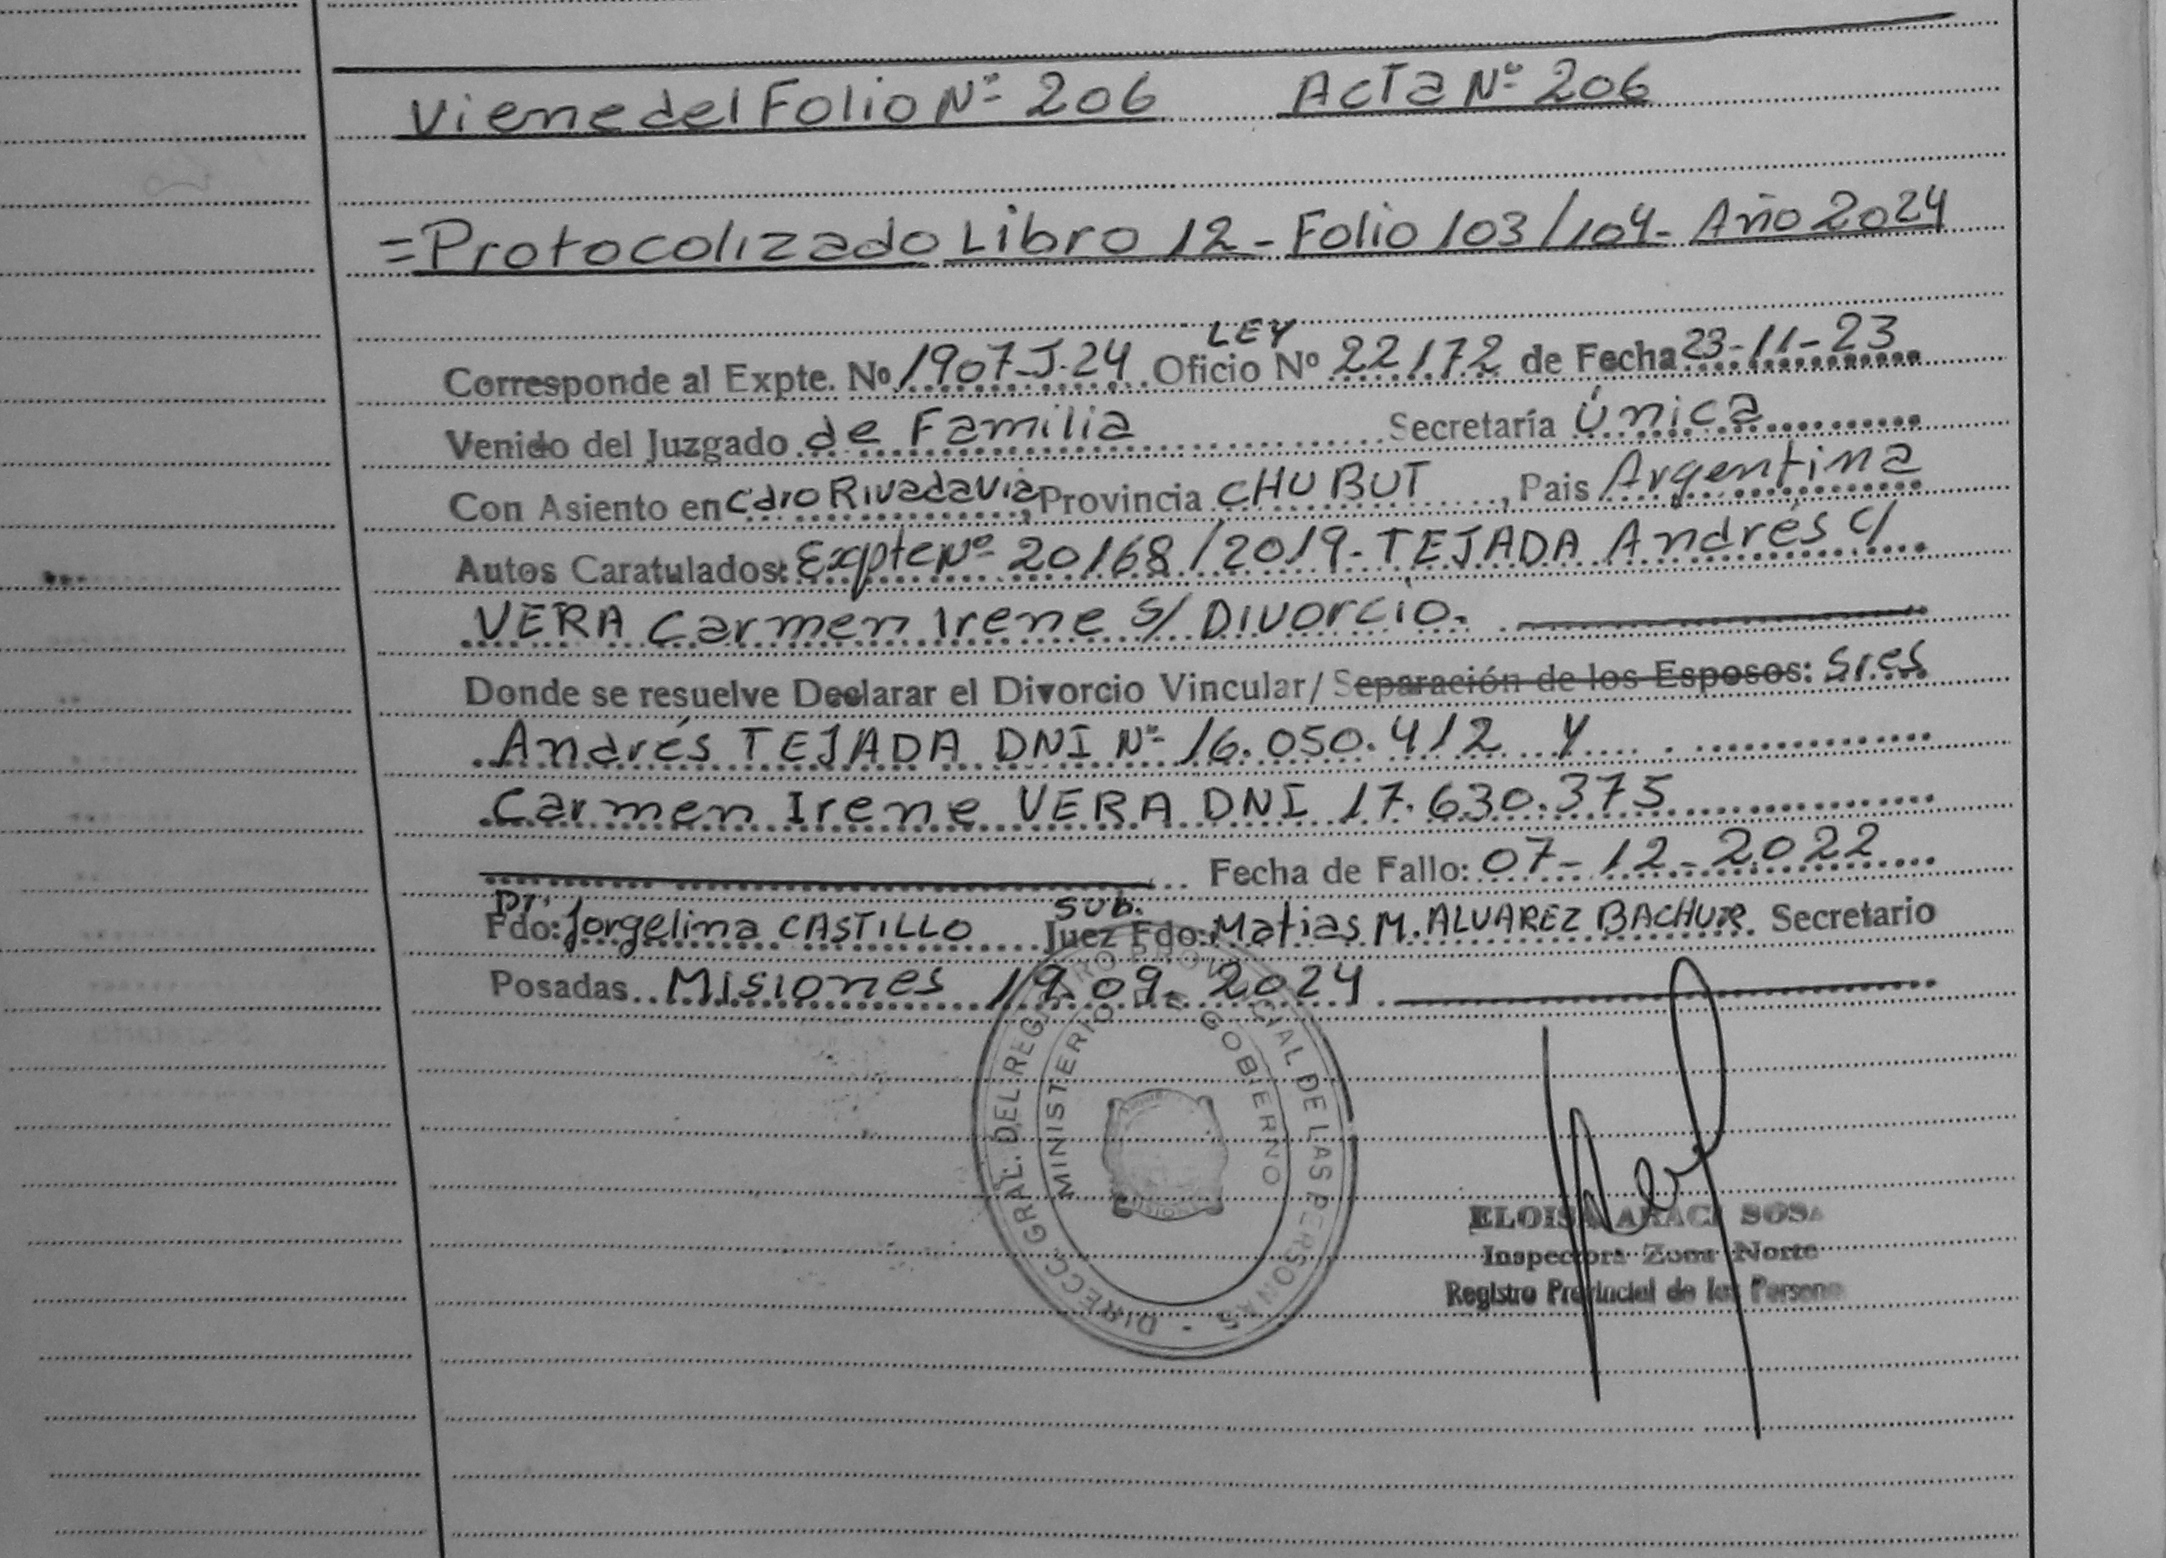 Viene del Folio Nº 206 Acta Nº 206
=Protocolizado Libro 12- Folio 103/104- Año 2024
LEY
Corresponde al Expte. Nº 1907-J-24 Oficio Nº 22172 de Fecha 23-11-23
Venido del Juzgado de Familia Secretaría Única
Con Asiento en Cdro Rivadavia, Provincia CHUBUT, Pais Argentina
Autos Caratulados: Expte Nº 20168/2019- TEJADA Andrés c/
VERA Carmen Irene s/ Divorcio.
Donde se resuelve Declarar el Divorcio Vincular/Separación de los Esposos: Sres
Andrés TEJADA DNI Nº 16.050.412 y
Carmen Irene VERA DNI 17.630.375
Fecha de Fallo: 07-12-2022
Dr. Sub.
Fdo: Jorgelina CASTILLO Juez Fdo: Matias M. ALVAREZ BACHUR. Secretario
Posadas Misiones 19.09.2024
DIRECC. GRAL. DEL REGISTRO PROVINCIAL DE LAS PERSONAS -
MINISTERIO DE GOBIERNO
MISIONES
ELOISA ARACI SOSA
Inspectora Zona Norte
Registro Provincial de las Persona